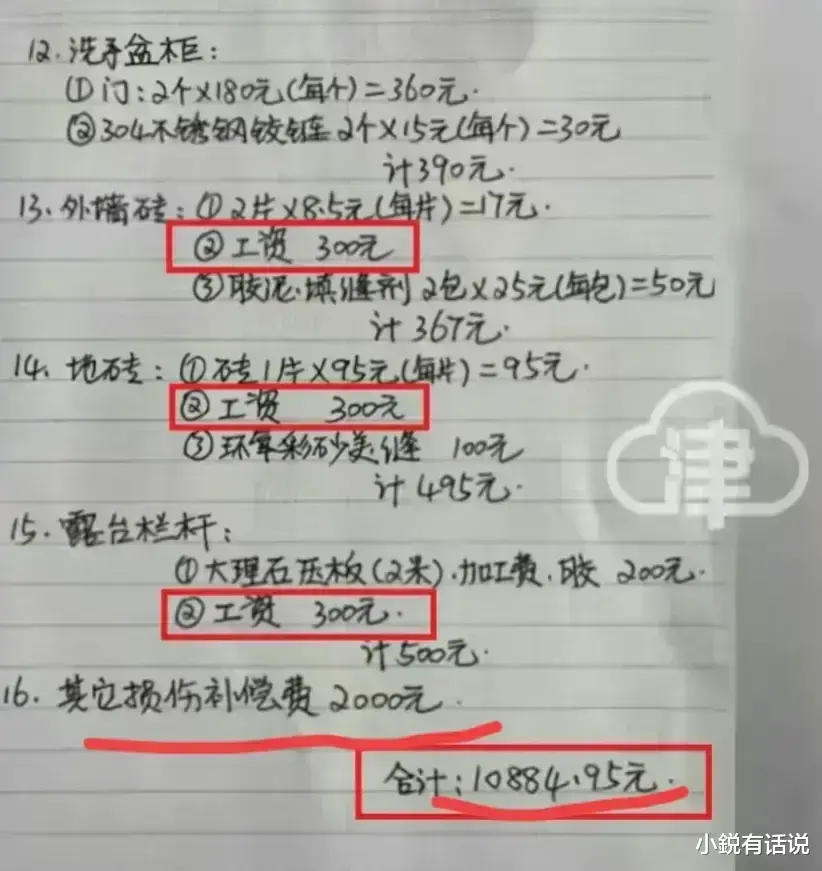 12.洗手盆柜：
①门：2个×180元(每个)=360元.
②304不锈钢铰链 2个×15元(每个)=30元
计390元.
13.外墙砖：①2片×8.5元(每片)=17元.
②工资 300元
③胶泥.填缝剂 2包×25元(每包)=50元
计367元.
14.地砖：①砖1片×95元(每片)=95元.
②工资 300元
③环氧彩砂美缝 100元
计495元.
15.露台栏杆：
①大理石压板(2米).加工费.胶 200元.
②工资 300元.
计500元.
16.其它损伤补偿费2000元.
合计：10884.95元.
津
小鋭有话说